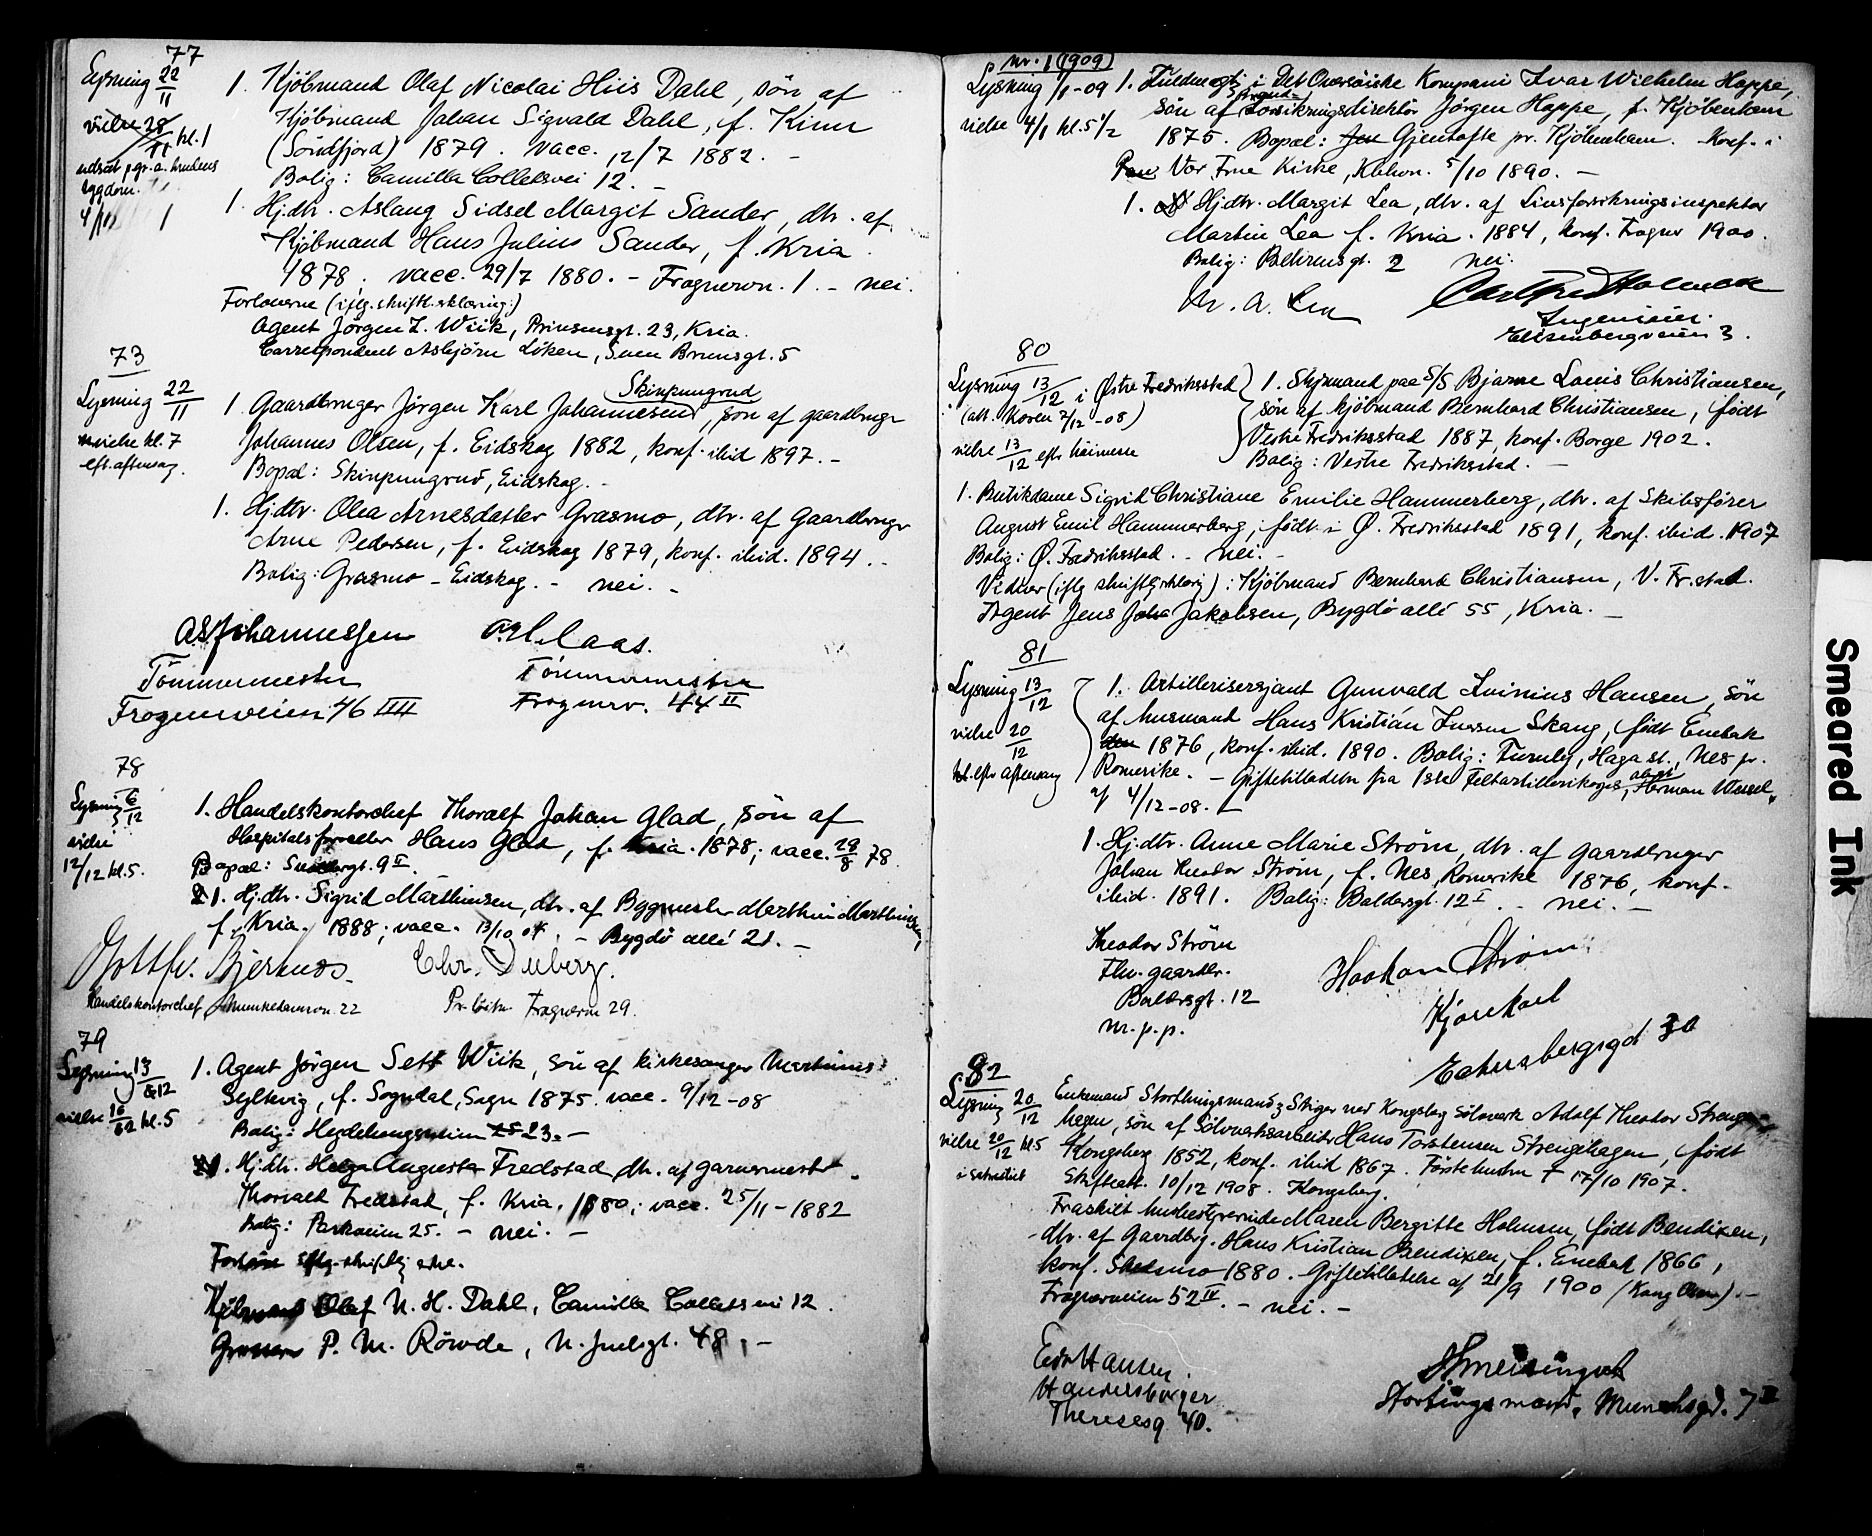 77
Lysning 22/11
vielse 28/11 kl. 1
udsat pgr. a. brudens
sygdom.
4/12 1
1. Kjöbmand Olaf Nicolai Hiis Dahl, sön af
Kjöbmand Johan Sigvald Dahl, f. Kinn
(Söndfjord) 1879. vacc. 12/7 1882. -
Bolig: Camilla Colletsvei 12. -
1. Hj.dtr. Aslaug Sidsel Margit Sander, dtr. af
Kjöbmand Hans Julius Sander, f. Kria
1878. vacc. 29/7 1880. - Frognervn. 1. - nei.
Forloverne (iflg. skriftl. erklæring:)
Agent Jörgen L. Wiik, Prinsensgt. 23, Kria.
Correspondent Asbjörn Löken, Sven Brunsgt. 5
73
Lysning 22/11
vielse kl. 7
eft. aftensag.
Skinpungrud
1. Gaardbruger Jörgen Karl Johannesen, sön af gaardbrugr
Johannes Olsen, f. Eidskog 1882, konf. ibid 1897. -
Bopæl: Skinpungrud, Eidskog. -
1. Hj.dtr. Olea Arnesdatter Grasmo, dtr. af Gaardbrugr
Arne Pedersen, f. Eidskog 1879, konf. ibid. 1894. -
Bolig: Grasmo - Eidskog. - nei. -
A. Johannessen
Tömmermester
Frognerveien 46 IIII
P. H. Claas.
Tömmermester
Frognerv. 44 II
78
Lysning 6/12
vielse
12/12 kl. 5.
1. Handelskontorchef Thoralf Johan Glad, sön af
Hospitalsforvalter Hans Glad, f. Kria. 1878; vacc. 29/8 78
Bopæl: 9 II.
1. Hj.dtr. Sigrid Marthinsen, dtr. af Bygmester Marthin Marthinsen,
f. Kria. 1888; vacc. 13/10 04. - Bygdö allé 21. -
Gottfr. Bjerknes.
Handelskontorchef, Munkedamsvn. 22
Chr. Duberg.
Frognervn 29.
79
Lysning 13/12
vielse 16/12 kl. 5
1. Agent Jörgen Sett Wiik, sön af kirkesanger Martinus
Syltevig, f. Sogndal, Sogn 1875. vacc. 9/12-08
Bolig: Hegdehaugsveien 23. -
1. Hj.dtr. Helga Augusta Fredstad, dtr. af garvermester
Thorvald Fredstad, f. Kria. 1880; vacc. 25/11-1882
Bolig: Parkveien 25. - nei. -
Forlovere iflg. skriftlig erkl.
Kjöbmand Olaf N. H. Dahl, Camilla Colletsvei 12.
Grosserer P. M. Röwde, N. Juelsgt. 48. -
nr. 1 (1909)
Lysning 1/1-09
vielse 4/1 kl. 5 1/2
1. Fuldmægtig i Det Oversöiske Kompani Ivar Wilhelm Hoppe,
sön af Brand- forsikringsdirektör Jörgen Hoppe, f. Kjöbenhavn
1875. Bopæl: Gjentofte pr. Kjöbenhavn. Konf. i
Vor Frue Kirke, Kbhvn. 5/10 1890. -
1. Hj.dtr. Margit Lea, dtr. af Livsforsikringsinspektör
Martin Lea f. Kria. 1884, konf. Frogner 1900.
Bolig: Behrensgt. 2 nei.
M. A. Lea
Carl Fred Holmsen
Ingeniör.
Eilsenbergveien 3.
80
Lysning 13/12 i Østre Fredriksstad
(att. Koren 7/12-08)
vielse 13/12 eft. höimesse
1. Styrmand paa S/S Bjarne Louis Christiansen,
sön af kjöbmand Bernhard Christiansen, födt
Vestre Fredriksstad 1887, konf. Borge 1902.
Bolig: Vestre Fredriksstad. -
1. Butikdame Sigrid Christiane Emilie Hammerberg, dtr. af Skibsförer
August Emil Hammerberg, födt i Ø. Fredriksstad 1891, konf. ibid. 1907
Bolig: Ø. Fredriksstad. - nei. -
Vidner (iflg skriftlig erklærg): Kjöbmand Bernhard Christiansen, V. Fr.stad.
Agent Jens Jakobsen, Bygdö allé 55, Kria. -
81
Lysning 13/12
vielse 20/12
kl. eftr aftensang
1. Artillerisersjant Gunvald Ivinius Hansen, sön
af husmand Hans Kristian Iversen Skaug, födt Enebak
1876, konf. ibid. 1890. Bolig: Furuly, Haga st., Nes pr.
Romerike. - Giftetilladelse fra 1ste Feltartillerikorps, Herman Wessel,
af 4/12-08. -
1. Hj.dtr. Anne Marie Ström, dtr. af gaardbruger
Johan Theodor Ström, f. Nes, Romerike 1876, konf.
ibid. 1891. Bolig: Baldersgt. 12 I. - nei. -
Theodor Ström
Fhv. gaardbr.
Baldersgt. 12
m. p. p.
Haakon Ström
Kjörekarl
Eckersbergsgd 30
82
Lysning 20/12
vielse 20/12 kl. 5
i sakristiet
Enkemand Storthingsmand, Stiger ved Kongsberg Sölvverk Adolf Theodor Strenge-
hagen, sön af Sölvverksarbeider Hans Torstensen Strengehagen, födt
Kongsberg 1852, konf. ibid 1867. Förstehustru † 17/10 1907.
Skifteatt. 10/12 1908. Kongsberg.
Fraskilt husbestyrerinde Maren Bergitte Holmsen, födt Bendixen,
dtr. af Gaardbrg. Hans Kristian Bendixen, f. Enebak 1866,
konf. Skedsmo 1880. Giftetilladelse af 21/9 1900 (Kong Oscar). -
Frognerveien 52 IV. - nei. -
Edv Hansen.
Handersborger
Theresesg 40.
Stortingsmand, Munchsgd. 7 II
Smeared Ink